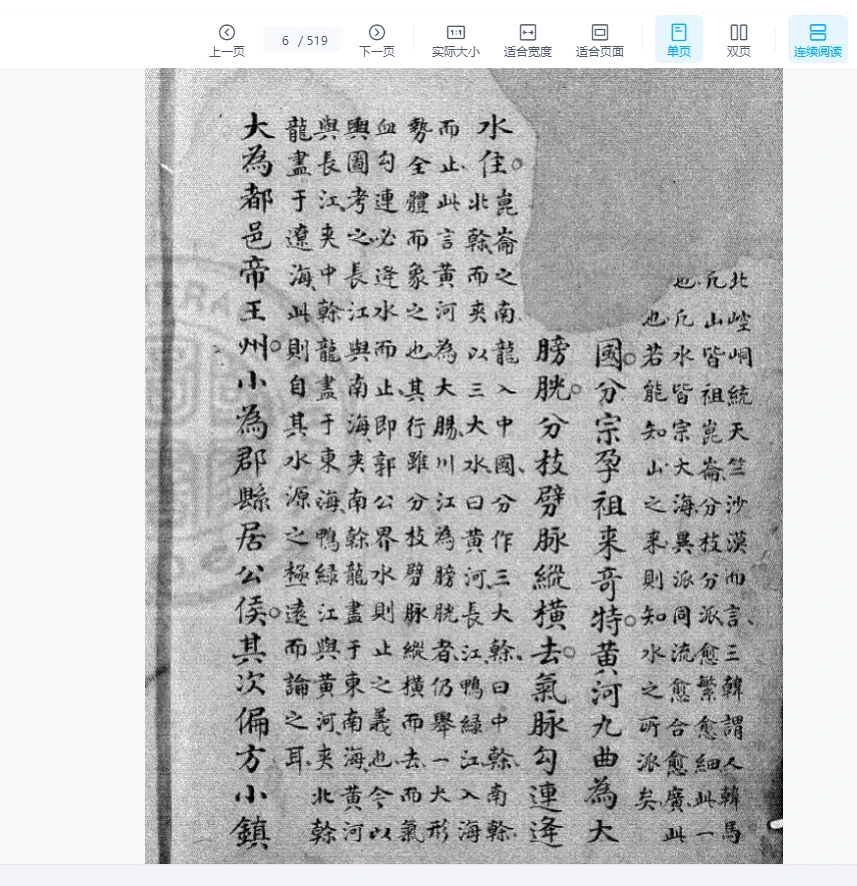 上一页 6 / 519 下一页 实际大小 适合宽度 适合页面 单页 双页 连续阅读
北崆峒統天竺沙漠而言、三韓謂人韓馬
凡山皆祖崑崙、分枝分派愈繁愈細、此一
也、凡水皆宗大海、異派同流愈合愈廣、此
也、若能知山之来則知水之所派矣、
國。分宗孕祖来奇特。黄河九曲為大
膀胱。分枝劈脉縱横去。氣脉勾連逢
水住。
崑崙之南、龍入中國、分作三大幹、曰中幹、南幹、
北幹、而夾以三大水曰黄河、長江、鴨緑江、入海
而止、此言黄河為大腸、川江為膀胱者、仍舉一大形
勢全體而象之也、其行雖分枝劈脉縱横而去、而氣
血勾連必逢水而止、即郭公界水則止之義也、今以
輿圖考之、長江與南海、夾南幹龍盡于東南海、黄河
與長江、夾中幹龍盡于東海、鴨緑江與黄河、夾北幹
龍盡于遼海、此則自其水源之極遠而論之耳、
大為都邑帝王州。小為郡縣居公侯。其次偏方小鎮